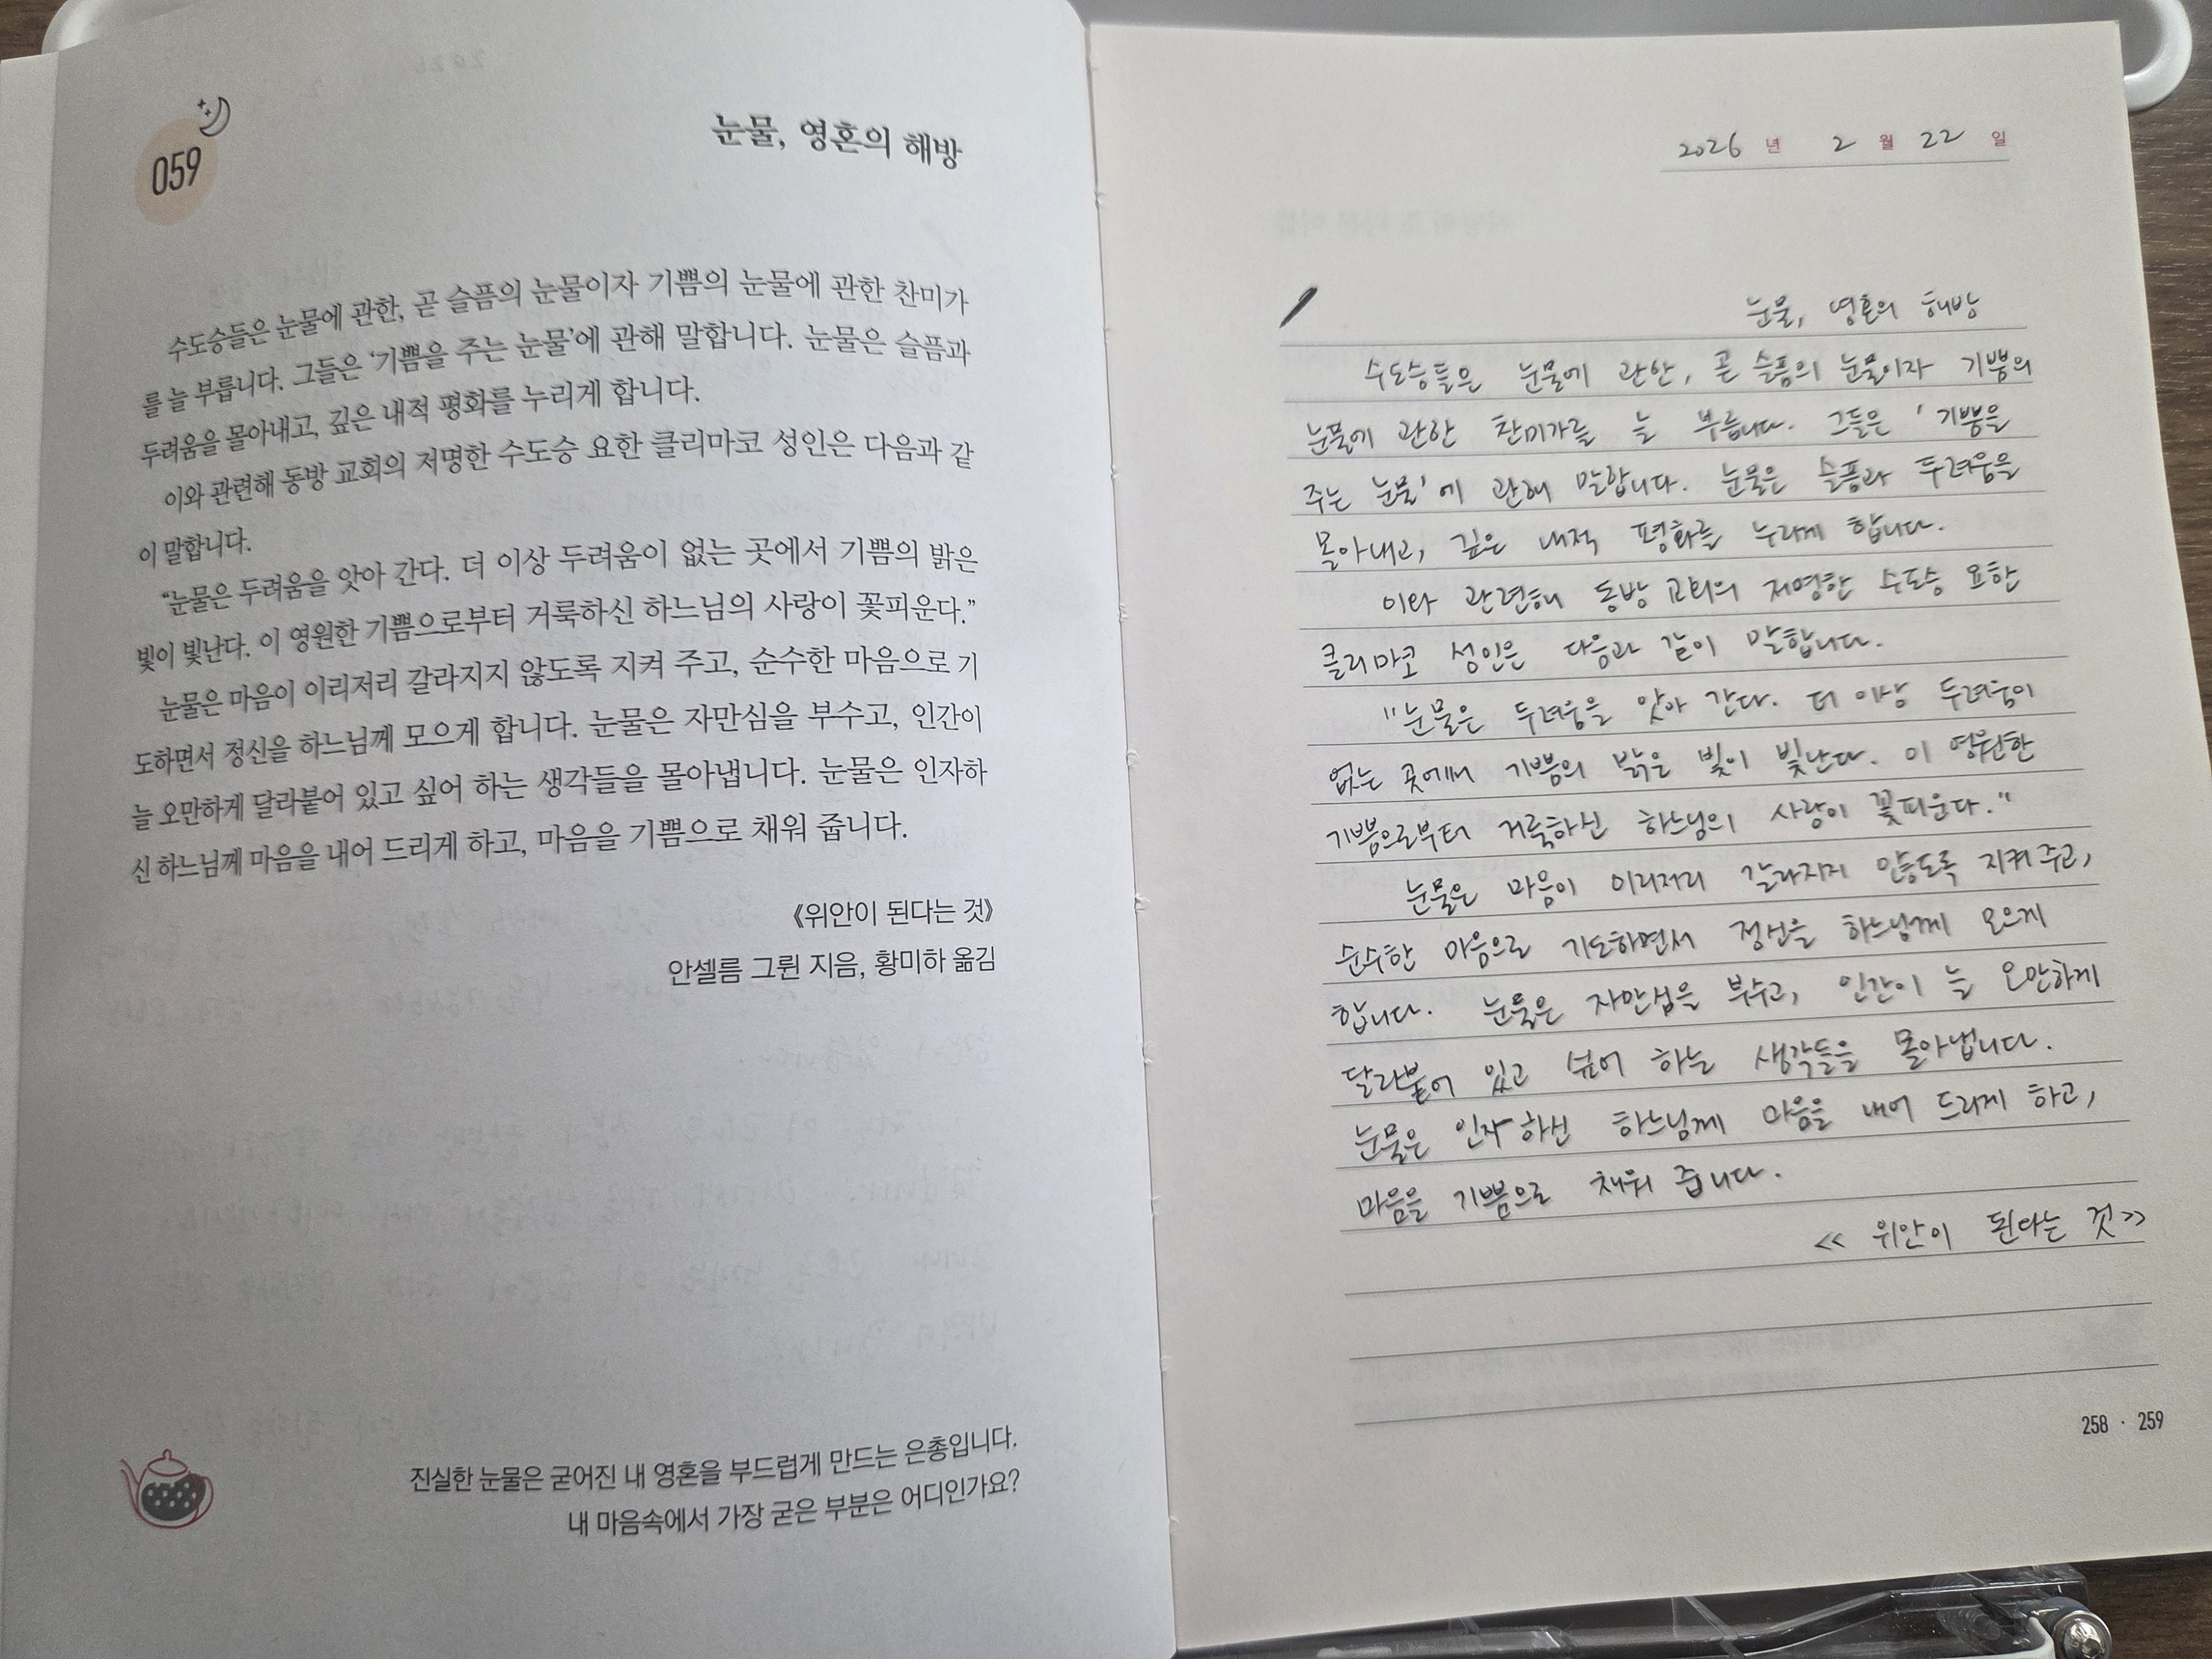 059
눈물, 영혼의 해방
수도승들은 눈물에 관한, 곧 슬픔의 눈물이자 기쁨의 눈물에 관한 찬미가
를 늘 부릅니다. 그들은 '기쁨을 주는 눈물'에 관해 말합니다. 눈물은 슬픔과
두려움을 몰아내고, 깊은 내적 평화를 누리게 합니다.
이와 관련해 동방 교회의 저명한 수도승 요한 클리마코 성인은 다음과 같
이 말합니다.
"눈물은 두려움을 앗아 간다. 더 이상 두려움이 없는 곳에서 기쁨의 밝은
빛이 빛난다. 이 영원한 기쁨으로부터 거룩하신 하느님의 사랑이 꽃피운다."
눈물은 마음이 이리저리 갈라지지 않도록 지켜 주고, 순수한 마음으로 기
도하면서 정신을 하느님께 모으게 합니다. 눈물은 자만심을 부수고, 인간이
늘 오만하게 달라붙어 있고 싶어 하는 생각들을 몰아냅니다. 눈물은 인자하
신 하느님께 마음을 내어 드리게 하고, 마음을 기쁨으로 채워 줍니다.
《위안이 된다는 것》
안셀름 그륀 지음, 황미하 옮김
진실한 눈물은 굳어진 내 영혼을 부드럽게 만드는 은총입니다.
내 마음속에서 가장 굳은 부분은 어디인가요?
2026 년 2 월 22 일
눈물, 영혼의 해방
수도승들은 눈물에 관한, 곧 슬픔의 눈물이자 기쁨의
눈물에 관한 찬미가를 늘 부릅니다. 그들은 '기쁨을
주는 눈물'에 관해 말합니다. 눈물은 슬픔과 두려움을
몰아내고, 깊은 내적 평화를 누리게 합니다.
이와 관련해 동방 교회의 저명한 수도승 요한
클리마코 성인은 다음과 같이 말합니다.
"눈물은 두려움을 앗아 간다. 더 이상 두려움이
없는 곳에서 기쁨의 밝은 빛이 빛난다. 이 영원한
기쁨으로부터 거룩하신 하느님의 사랑이 꽃피운다."
눈물은 마음이 이리저리 갈라지지 않도록 지켜 주고,
순수한 마음으로 기도하면서 정신을 하느님께 모으게
합니다. 눈물은 자만심을 부수고, 인간이 늘 오만하게
달라붙어 있고 싶어 하는 생각들을 몰아냅니다.
눈물은 인자하신 하느님께 마음을 내어 드리게 하고,
마음을 기쁨으로 채워 줍니다.
<< 위안이 된다는 것>>
258 · 259